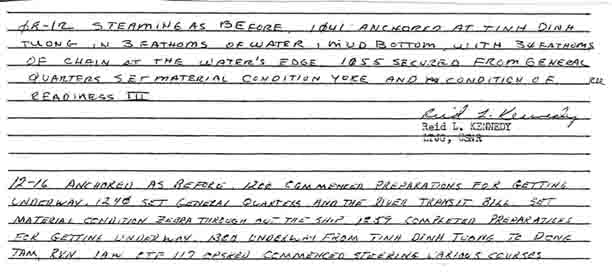 08-12 STEAMING AS BEFORE. 1041 ANCHORED AT TINH DINH
TUONG IN 3 FATHOMS OF WATER, MUD BOTTOM, WITH 34 FATHOMS
OF CHAIN AT THE WATER'S EDGE. 1055 SECURED FROM GENERAL
QUARTERS SET MATERIAL CONDITION YOKE AND CONDITION OF
READINESS III
Reid L. Kennedy
Reid L. KENNEDY
LTJG, USNR
12-16 ANCHORED AS BEFORE. 1200 COMMENCED PREPARATIONS FOR GETTING
UNDERWAY. 1240 SET GENERAL QUARTERS AND THE RIVER TRANSIT BILL. SET
MATERIAL CONDITION ZEBRA THROUGH OUT THE SHIP. 1259 COMPLETED PREPARATIONS
FOR GETTING UNDERWAY. 1300 UNDERWAY FROM TINH DINH TUONG TO DONG
TAM, RVN IAW CTF 117 OPSKED COMMENCED STEERING VARIOUS COURSES